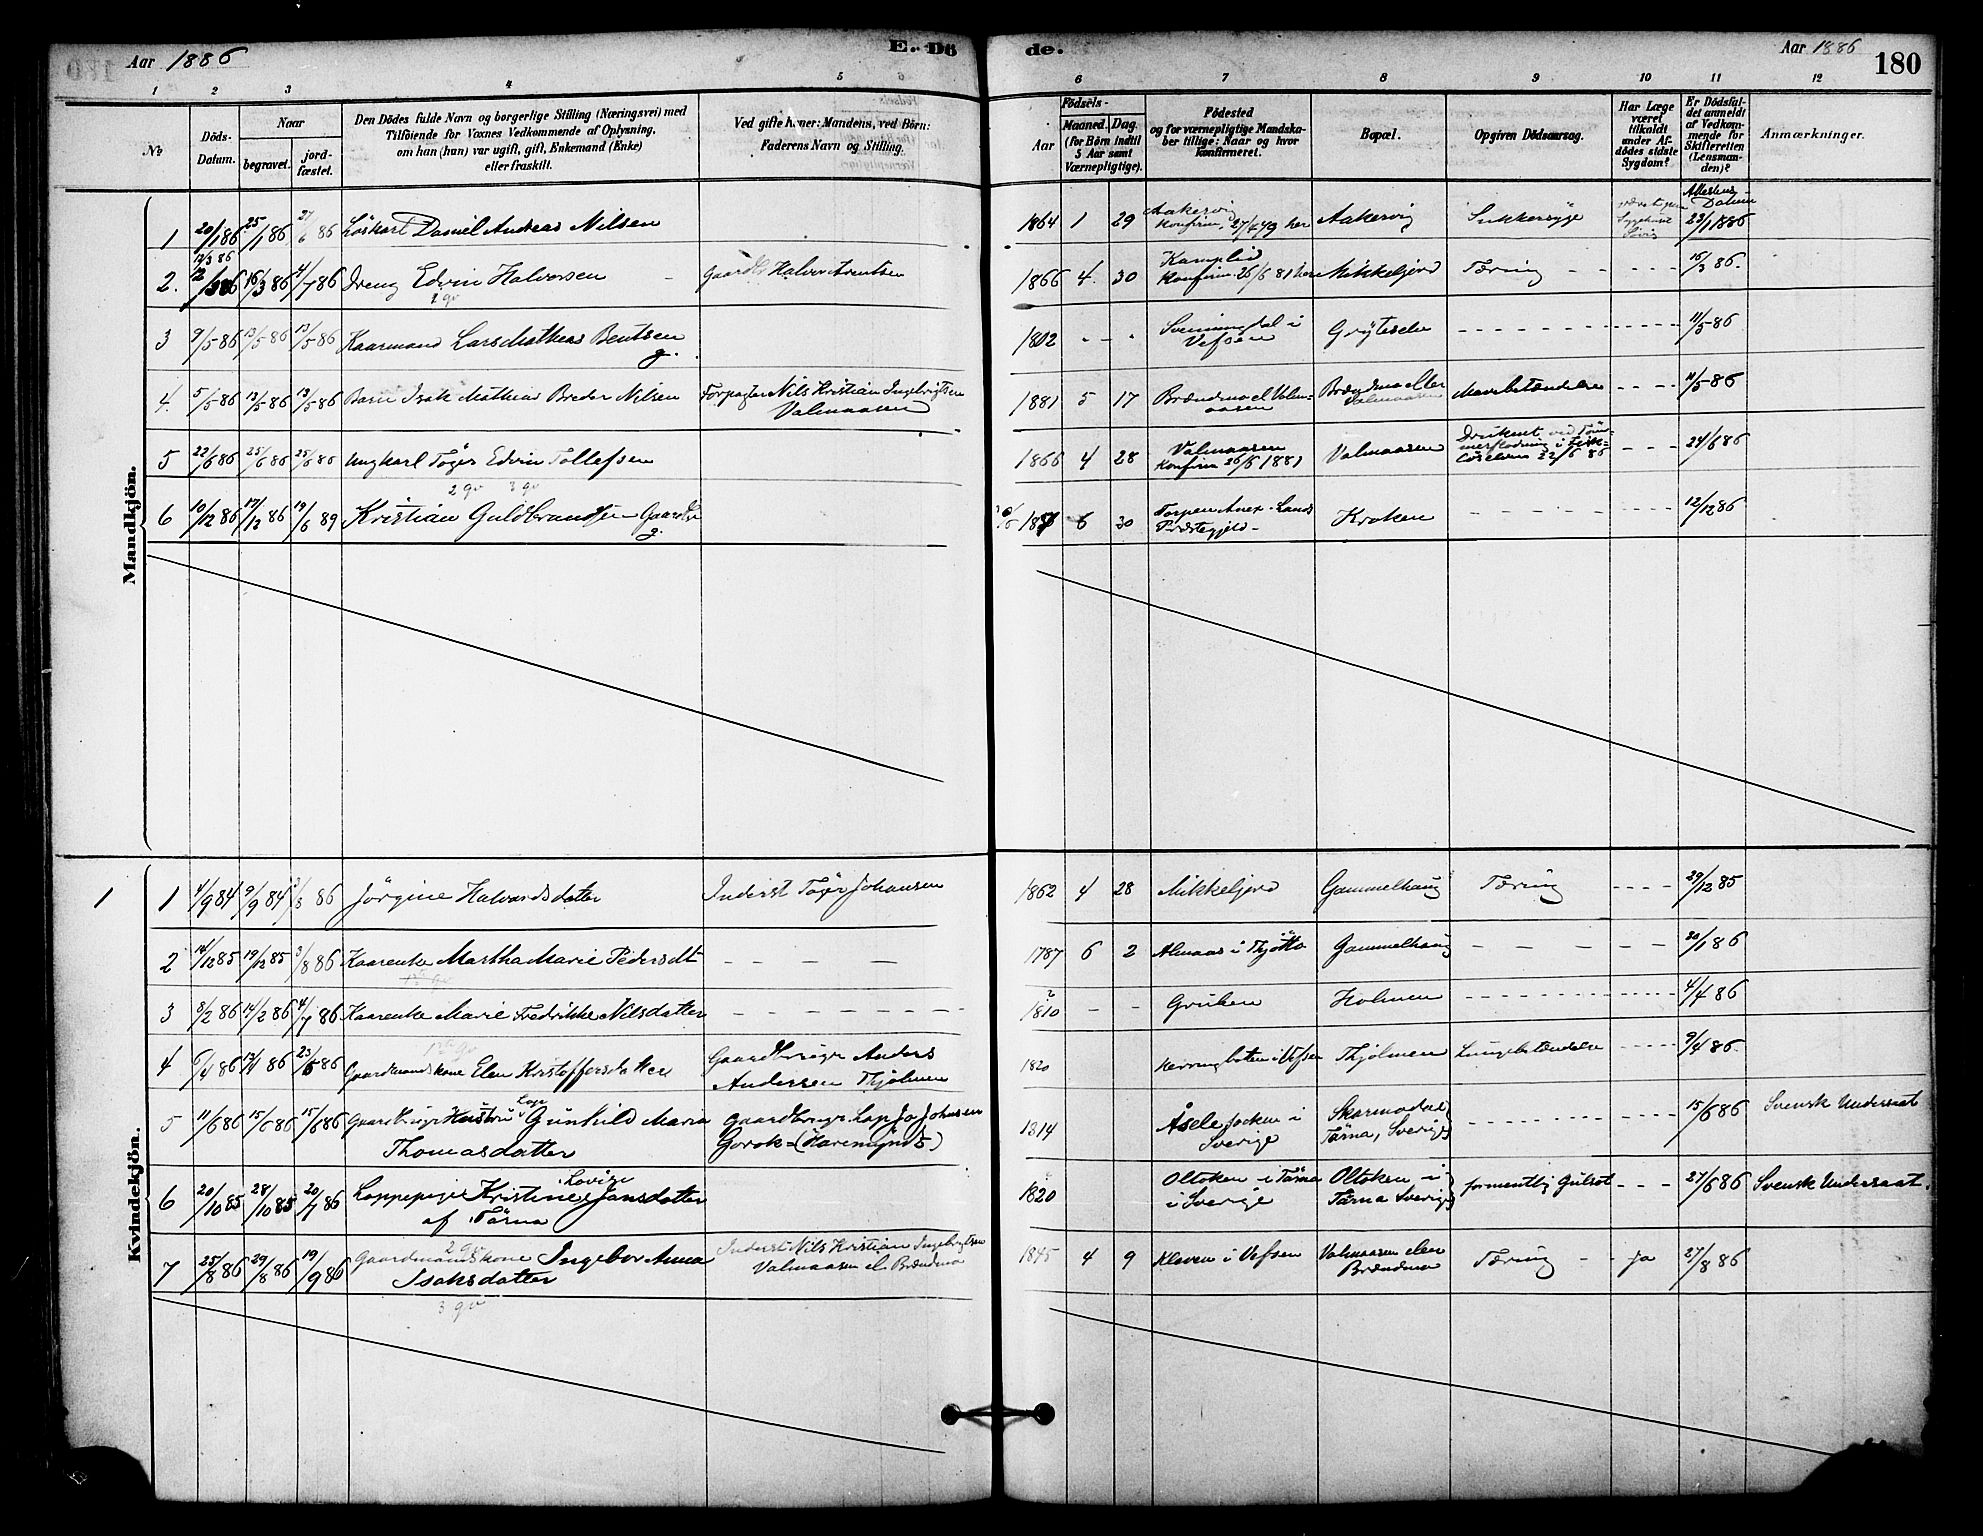 Aar 1886
E. Dö
de.
Aar 1886
180
1 2 3 4 5 6 7 8 9 10 11 12
No.
Döds-
Datum.
Naar
begravet.
jord-
fæstet.
Den Dödes fulde Navn og borgerlige Stilling (Næringsvei) med
Tilföiende for Voxnes Vedkommende af Oplysning,
om han (hun) var ugift, gift, Enkemand (Enke)
eller fraskilt.
Ved gifte koner: Mandens, ved Börn:
Faderens Navn og Stilling.
Födsels-
Aar
Maaned.
Dag.
(for Børn indtil
5 Aar samt
Værnepligtige).
Födested
og for værnepligtige Mandska-
ber tillige: Naar og hvor
konfirmeret.
Bopæl.
Opgiven Dödsaarsag.
Har Læge
været
tilkaldt
under Af-
dödes sidste
Sygdom?
Er Dödsfal-
det anmeldt
af Vedkom-
mende for
Skifteretten
(Lensman-
den)?
Anmærkninger.
Mandkjön.
1 20/1 86 25/1 86 27/6 86 Löskarl Daniel Andreas Nilsen 1864 1 29 Aakervig
Konfirm. 27/4 79 her Aakervig Sukkersyge
Attestens
Datum
23/1 1886
12/3 86
2. 16/3 86 4/7 86 Dreng Edvin Halvorsen 1866 4. 30 Kamplid
Konfirm. 26/6 81 her Mikkeljord Tæring - - - - - 16/3 86.
2 gv
3 9/5 86 13/5 86 13/5 86 Kaarmand Lars Mathias Bentsen
g. 1802 - - - Svenningdal i
Vefsen Gryteselv - - - - - 11/5 86
4. 5/5 86 13/5 86 13/5 86 Barn Isak Mathias Breder Nilsen Forpagter Nils Kristian Ingebrigtsen
Valmaasen 1881 5 17 Brændmo el Valm-
aasen Brændmo eller
Valmaasen Mavebetændelse - - - 11/5 86
5 22/6 86 25/6 86 25/6 86 Ungkarl Töger Edvin Tollefsen 1866 4 28 Valmaasen
Konfirm 26/6 1881 Valmaasen Druknet ved Töm-
merflodning i
22/6 86 - - - 24/6 86
2 gv 3 gv
6 10/12 86 17/12 86 19/6 89 Kristian Guldbrandsen - Gaardbr
g. 6 30 Torpen Anex - Lands
Præstegjeld - Kroken - - - - - 12/12 86
Kvindekjön.
1 1 4/9 84 9/9 84 3/8 86 Jörgine Halvordsdatter Inderst Töger Johansen 1862 4 28 Mikkeljord Gammelhaug Tæring - - - - 29/12 85
2 14/12 85 19/12 85 3/8 86 Kaarenke Martha Marie Pedersdt - - - - 1787 6 2 Almaas i Thjötta Gammelhaug - - - - - 20/1 86
3 8/2 86 14/2 86 4/7 86 Kaarenke Marie Fredrikke Nilsdatter - - - - - - - 1810 - - Gruben Holmen - - - - - 4/4 86
4 6/4 86 23/5 86 Gaardmandskone Elen Kristoffersdatter Gaardbruger Anders
Andersen Thjolmen 1820 i Vefsen Thjolmen Lungebetændelse - - - - 9/4 86.
5 11/6 86 15/6 86 15/6 86 Gaardbruger Hustru Lap Gunhild Maria
Thomasdatter Gaardbruger Lap Jo Johnsen
1814 Åsele socken i
Sverige Skarmodal
Tärna, Sverige - - - - - 15/6 86 Svensk Undersaat
6 20/10 85 28/10 85 20/7 86 Lappepige Kristine Lovise Jonsdatter
af Tärna 1820 Oltoken i Tärna
i Sverige Oltoken i
Tärna Sverige formentlig Gulsot - - - 27/6 86 Svensk Undersaat.
7 25/8 86 29/8 86 19/9 86 Gaardmandskone Ingebor Anna
Isaksdatter Inderst Nils Kristian Ingebrigtsen
Valmaasen el. Brændmo 1845 4 9 Kleven i Vefsen Valmaasen eller
Brændmo Tæring - - ja 27/8 86
3 gv